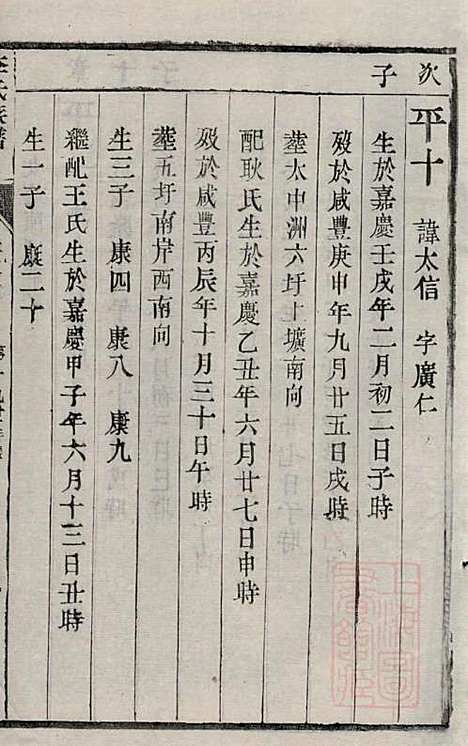 次子
平十 諱太信 字廣仁
生於嘉慶壬戌年二月初二日子時
歿於咸豐庚申年九月廿五日戌時
塟太中洲六圩上壙南向
配耿氏生於嘉慶乙丑年六月廿七日申時
歿於咸豐丙辰年十月三十日午時
塟五圩南岸西南向
生三子 康四 康八 康九
繼配王氏生於嘉慶甲子年六月十三日丑時
生一子 康二十